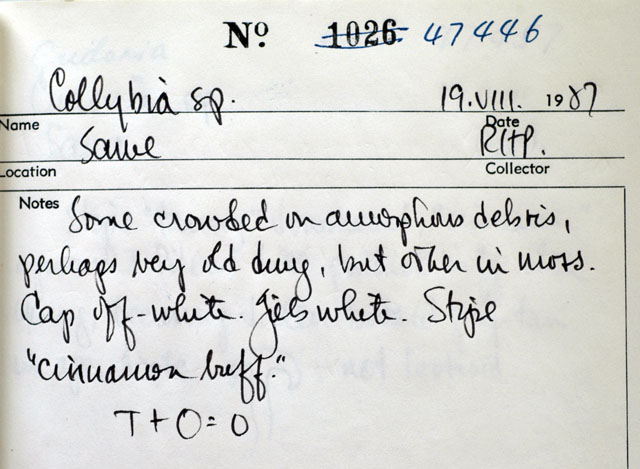 Nº 1026 47446
Collybia sp. 19.VIII. 1987
Name Date
Same RHP.
Location Collector
Notes Some crowded on amorphous debris,
perhaps very old dung, but other in moss.
Cap off-white. Gills white. Stipe
"cinnamon buff."
T+O=0